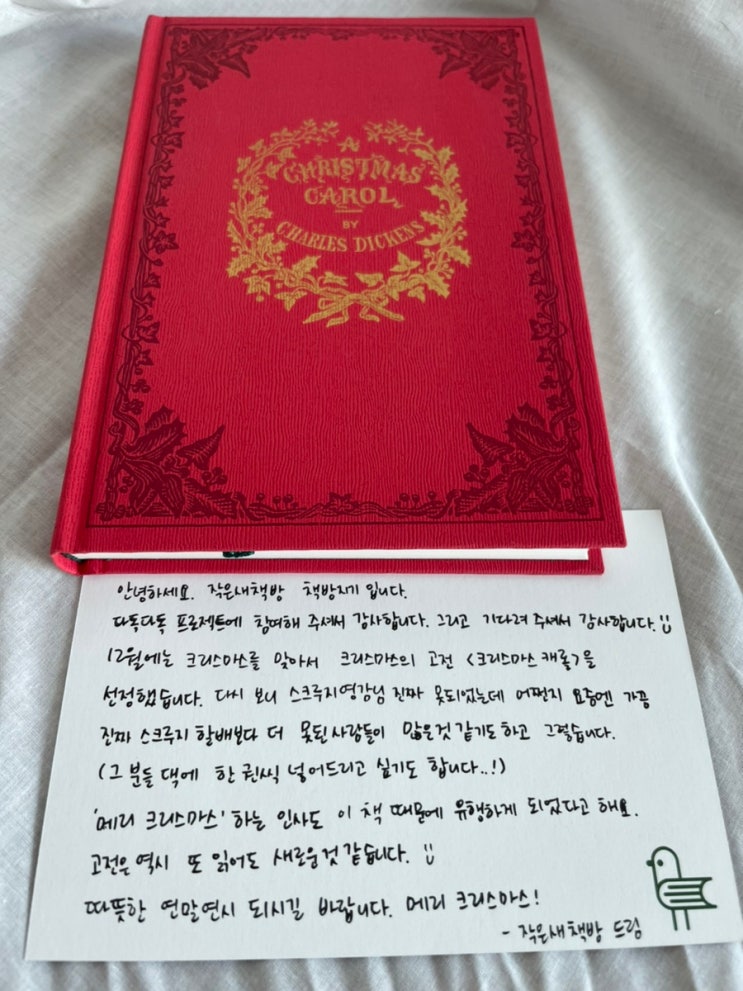 A
CHRISTMAS
CAROL,
BY
CHARLES DICKENS
안녕하세요. 작은새책방 책방지기 입니다.
다독다독 프로젝트에 참여해 주셔서 감사합니다. 그리고 기다려 주셔서 감사합니다.
12월에는 크리스마스를 맞아서 크리스마스의 고전 <크리스마스 캐롤>을
선정했습니다. 다시 보니 스크루지영감님 진짜 못되었는데 어쩐지 요즘엔 가끔
진짜 스크루지 할배보다 더 못된 사람들이 많은것 같기도하고 그렇습니다.
(그 분들 댁에 한 권씩 넣어드리고 싶기도 합니다..!)
'메리 크리스마스' 하는 인사도 이 책 때문에 유행하게 되었다고 해요.
고전은 역시 또 읽어도 새로운것 같습니다.
따뜻한 연말연시 되시길 바랍니다. 메리 크리스마스!
- 작은새책방 드림